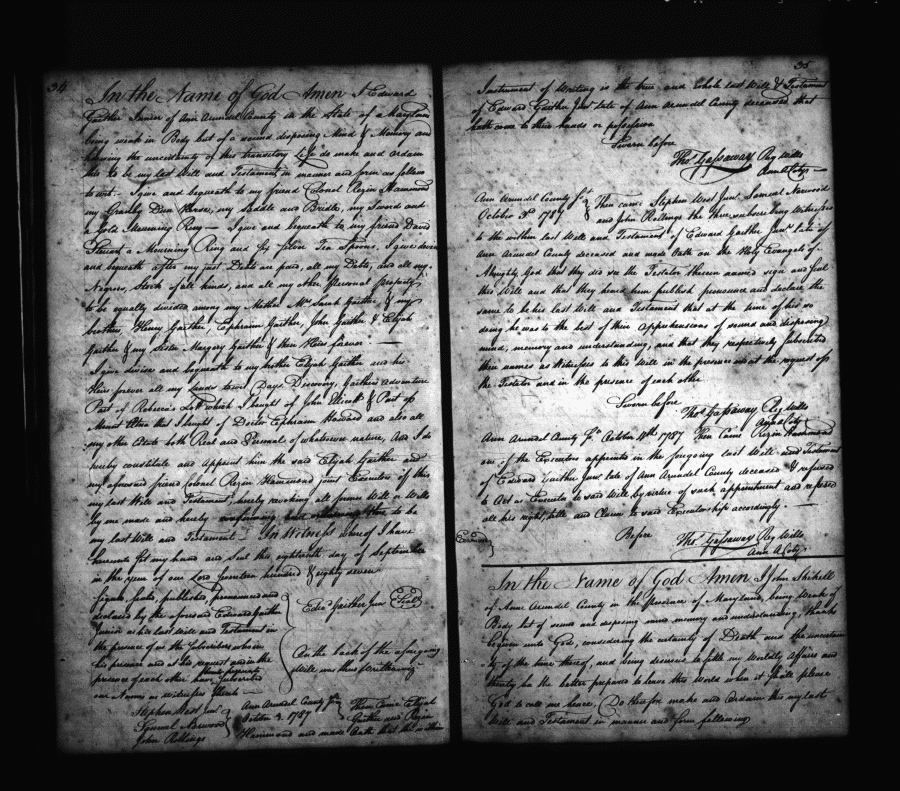 34
In the Name of God Amen I Edward
Gaither Junior of Ann Arundel County in the State of Maryland
being weak in Body but of a sound disposing Mind & Memory and
knowing the uncertainty of this transitory Life do make and ordain
this to be my last Will and Testament in manner and form as follows
to wit. I give and bequeath to my friend Colonel Rezin Hammond
my Grey Horse, my Saddle and Bridle, my Sword and
a Gold Mourning Ring — I give and bequeath to my friend David
Steuart a Mourning Ring and Six Silver Tea Spoons, I give devise
and bequeath after my just Debts are paid, all my Debts, and all my
Negroes, Stock of all kinds, and all my other personal property
to be equally divided among my Mother Mrs Sarah Gaither, & my
brothers, Henry Gaither, Ephraim Gaither, John Gaither & Elijah
Gaither & my Sister Margery Gaither & their Heirs forever —
I give devise and bequeath to my brother Elijah Gaither and his
Heirs forever all my Lands Days Discovery, Gaithers Adventure
Part of Rebecca's Lot which I bought of John Elicott & Part of
Mount Etna that I bought of Doctor Ephraim Howard and also all
my other Estate both Real and Personal of whatsoever nature, And I do
hereby constitute and appoint him the said Elijah Gaither and
my aforesaid friend Colonel Rezin Hammond joint Executors of this
my last Will and Testament, hereby revoking all former Will or Wills
by me made and hereby to be
my last Will and Testament — In Witness whereof I have
hereunto set my hand and Seal this eighteenth day of September
in the year of our Lord seventeen hundred & eighty seven
Signed, Sealed, published, pronounced and
declared by the aforesaid Edward Gaither
Junior as his last Will and Testament in
the presence of us the Subscribers who in
his presence and at his request and in the
presence of each other have subscribed
our Names as witnesses thereto —
Stephen West Junr
Samuel Norwood
John Rollings
Edwd Gaither Junr Seal
On the back of the aforegoing
Will was thus written viz
Ann Arundel County Sct
October 3. 1787
Then Came Elijah
Gaither and Rezin
Hammond and made Oath that the within
35
Instrument of Writing is the true and whole last Will & Testament
of Edward Gaither Junr late of Ann Arundel County deceased that
hath come to their hands or possession
Sworn before
Thos Gassaway Reg Wills
Ann A Coty
Ann Arundel County Sct
October 3rd 1787
Then came Stephen West Junr Samuel Norwood
and John Rollings the three subscribing Witnesses
to the within last Will and Testament of Edward Gaither Junr late of
Ann Arundel County deceased and made Oath on the Holy Evangels of
Almighty God that they did see the Testator therein named sign and seal
this Will and that they heard him publish pronounce and declare the
same to be his last Will and Testament that at the time of his so
doing he was to the best of their Apprehensions of sound and disposing
mind, memory and understanding, and that they respectively subscribed
their names as Witnesses to this Will in the presence and at the request of
the Testator and in the presence of each other
Sworn before
Thos Gassaway Reg Wills
Ann A Coty
Ann Arundel County Sct October 4th 1787 Then Came Rezin Hammond
one of the Executors appointed in the foregoing last Will and Testament
of Edward Gaither Junr late of Ann Arundel County deceased & refused
to Act as Executor to said Will by virtue of such appointment and refused
all his right, title and Claim to said Executorship accordingly. —
Before
Thos Gassaway Reg Wills
Ann A Coty
Examined
In the Name of God Amen I John
of Anne Arundel County in the Province of Maryland, being Weak of
Body but of sound and disposing mind memory and understanding, thanks
be given unto God, considering the certainty of Death and the uncertain
ty of the time thereof, and being desirous to settle my Worldly Affairs and
thereby be the better prepared to leave this World when it shall please
God to call me hence, Do therefore make and Ordain this my last
Will and Testament in manner and form following